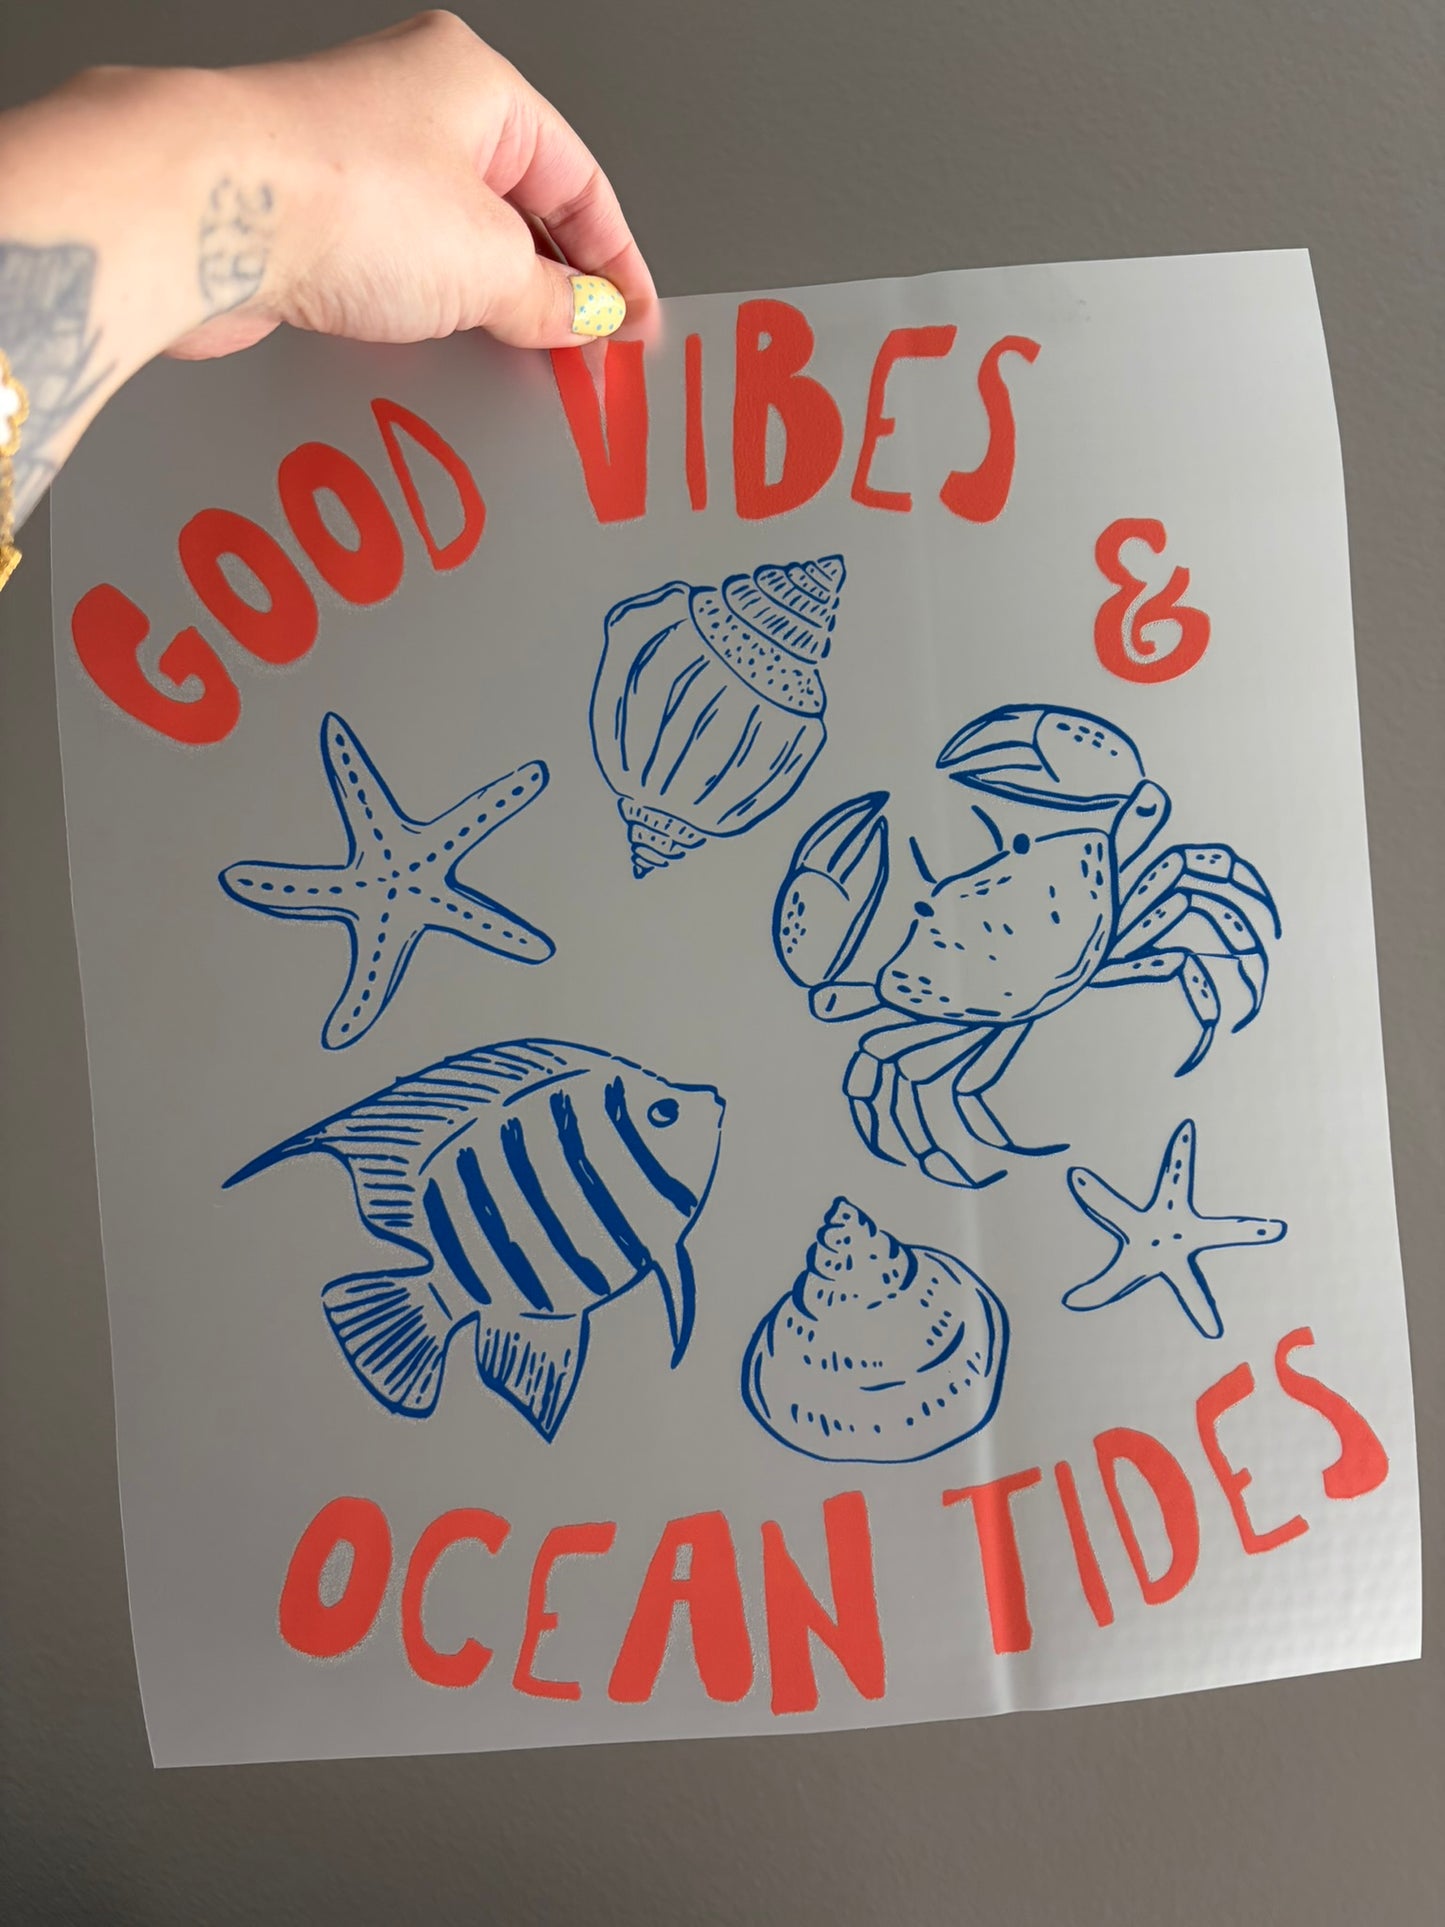 GOOD VIBES
&
OCEAN TIDES